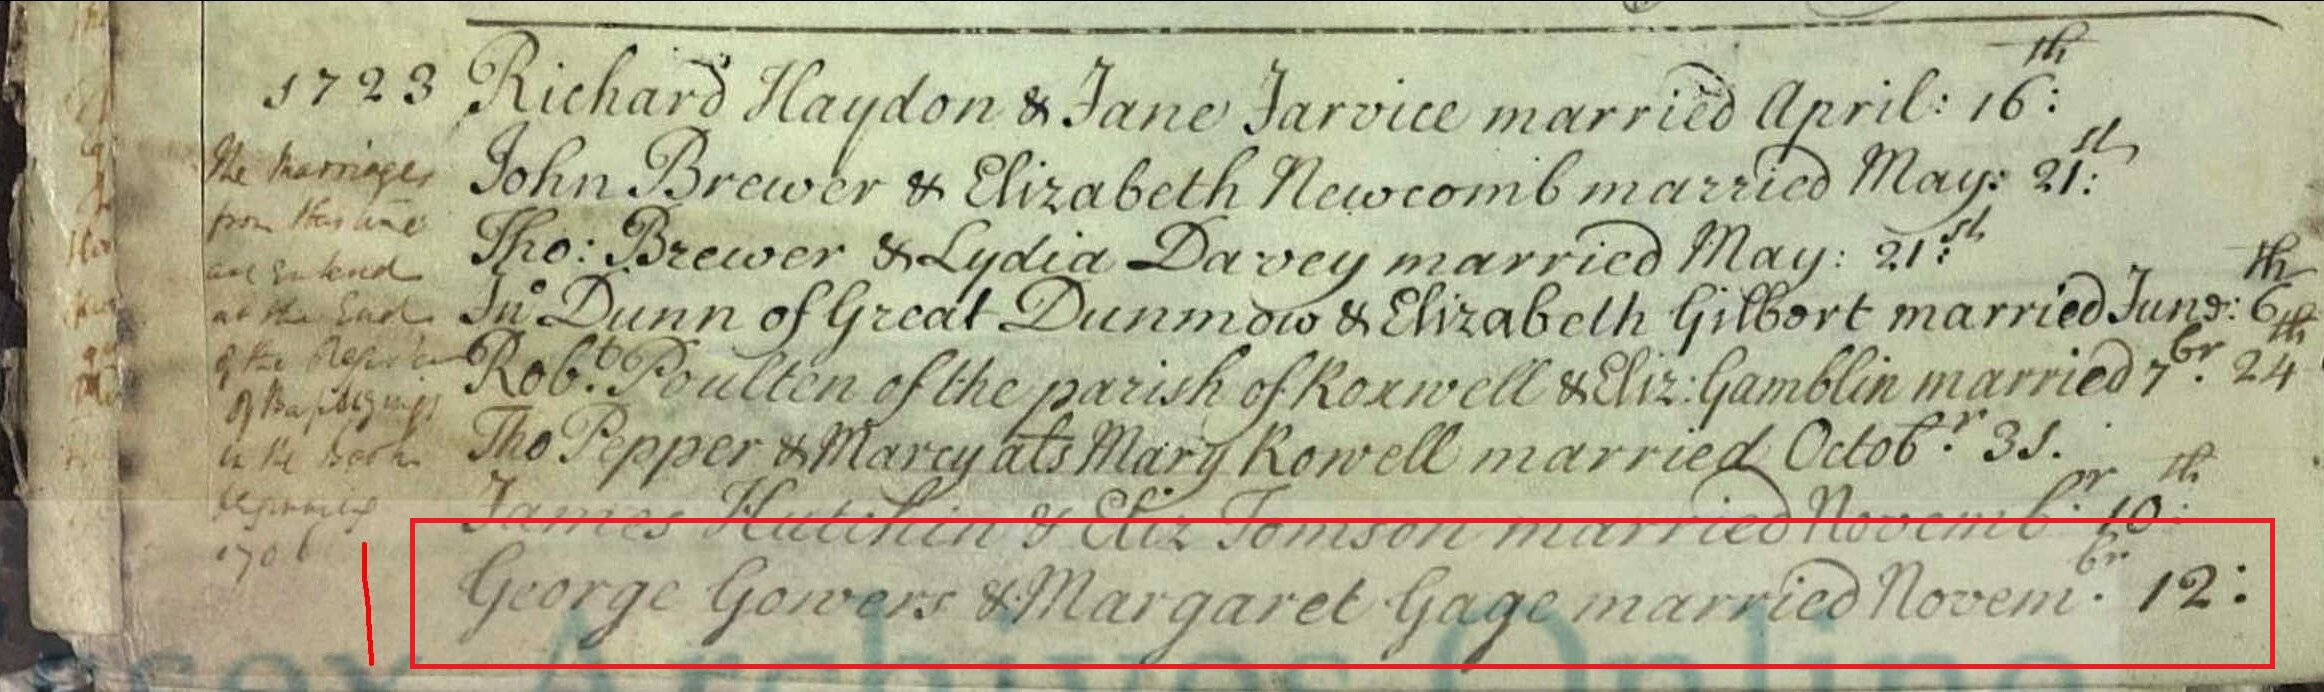 1723 Richard Haydon & Jane Jarvice married April: 16:th
John Brewer & Elizabeth Newcomb married May: 21:st
Tho: Brewer & Lydia Davey married May: 21:st
Jno Dunn of Great Dunmow & Elizabeth Gilbort married June: 6th
Robt. Poulten of the parish of Roxwell & Eliz: Gamblin married 7br. 24th
Tho Pepper & Marcy als Mary Rowell married Octobr. 31.
James Hutchin & Eliz Tomson married Novembr 10:th
George Gowers & Margaret Gage married Novembr. 12:
The Marriages
from this time
are entered
at the End
of the Register
of Baptizings
in the Book
beginning
1706
Essex Archives Online